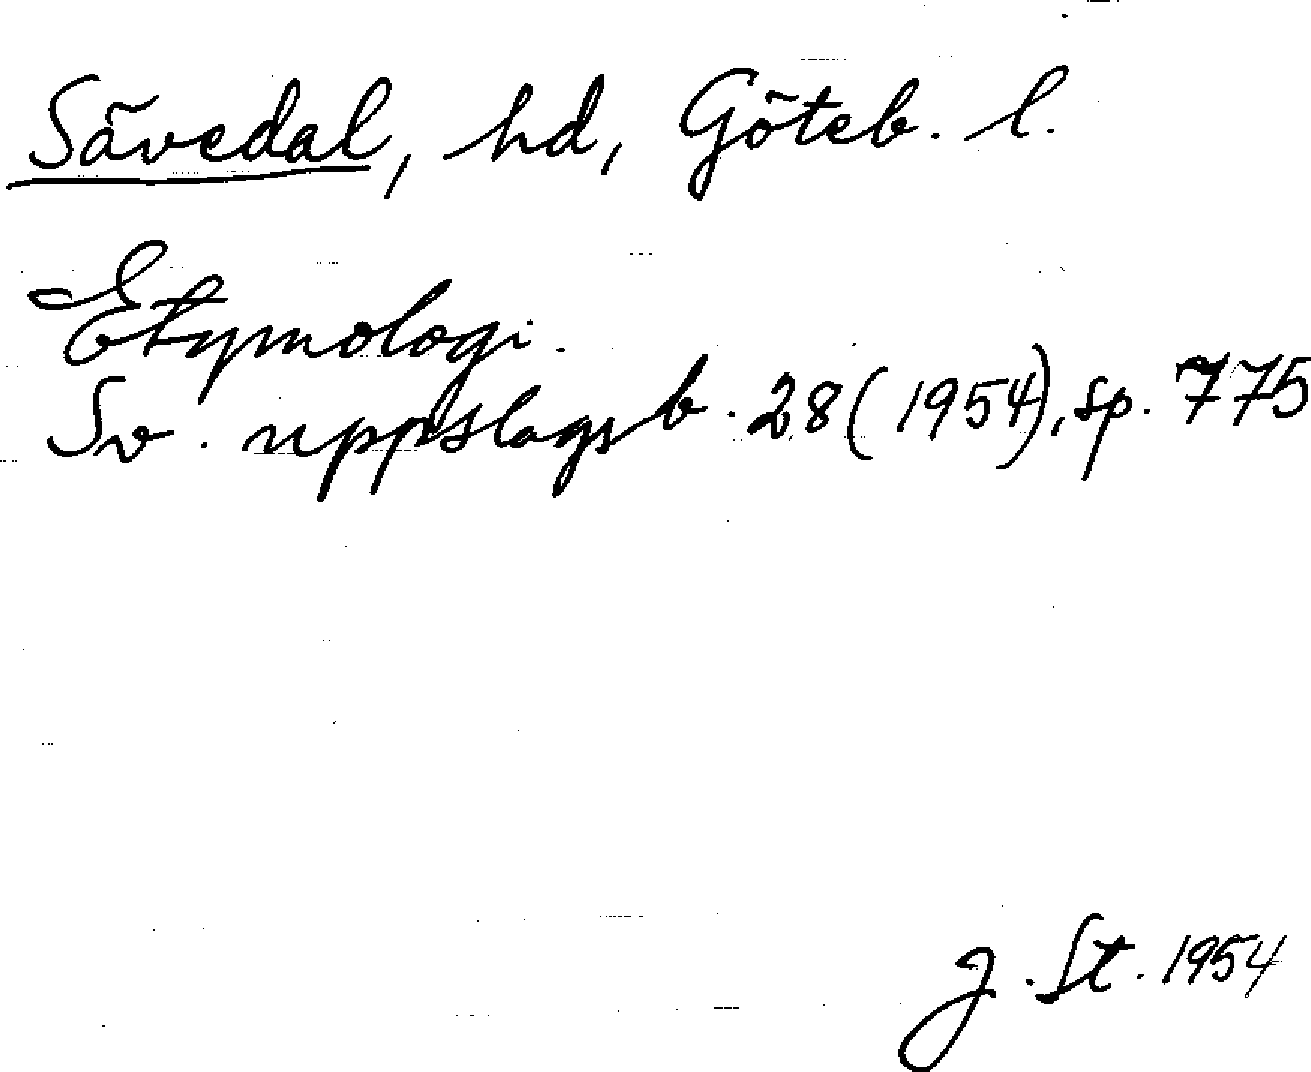 Sävedal, hd, Göteb. l.
Etymologi.
Sv. uppslagsb. 28 (1954), sp. 775
J. St. 1954